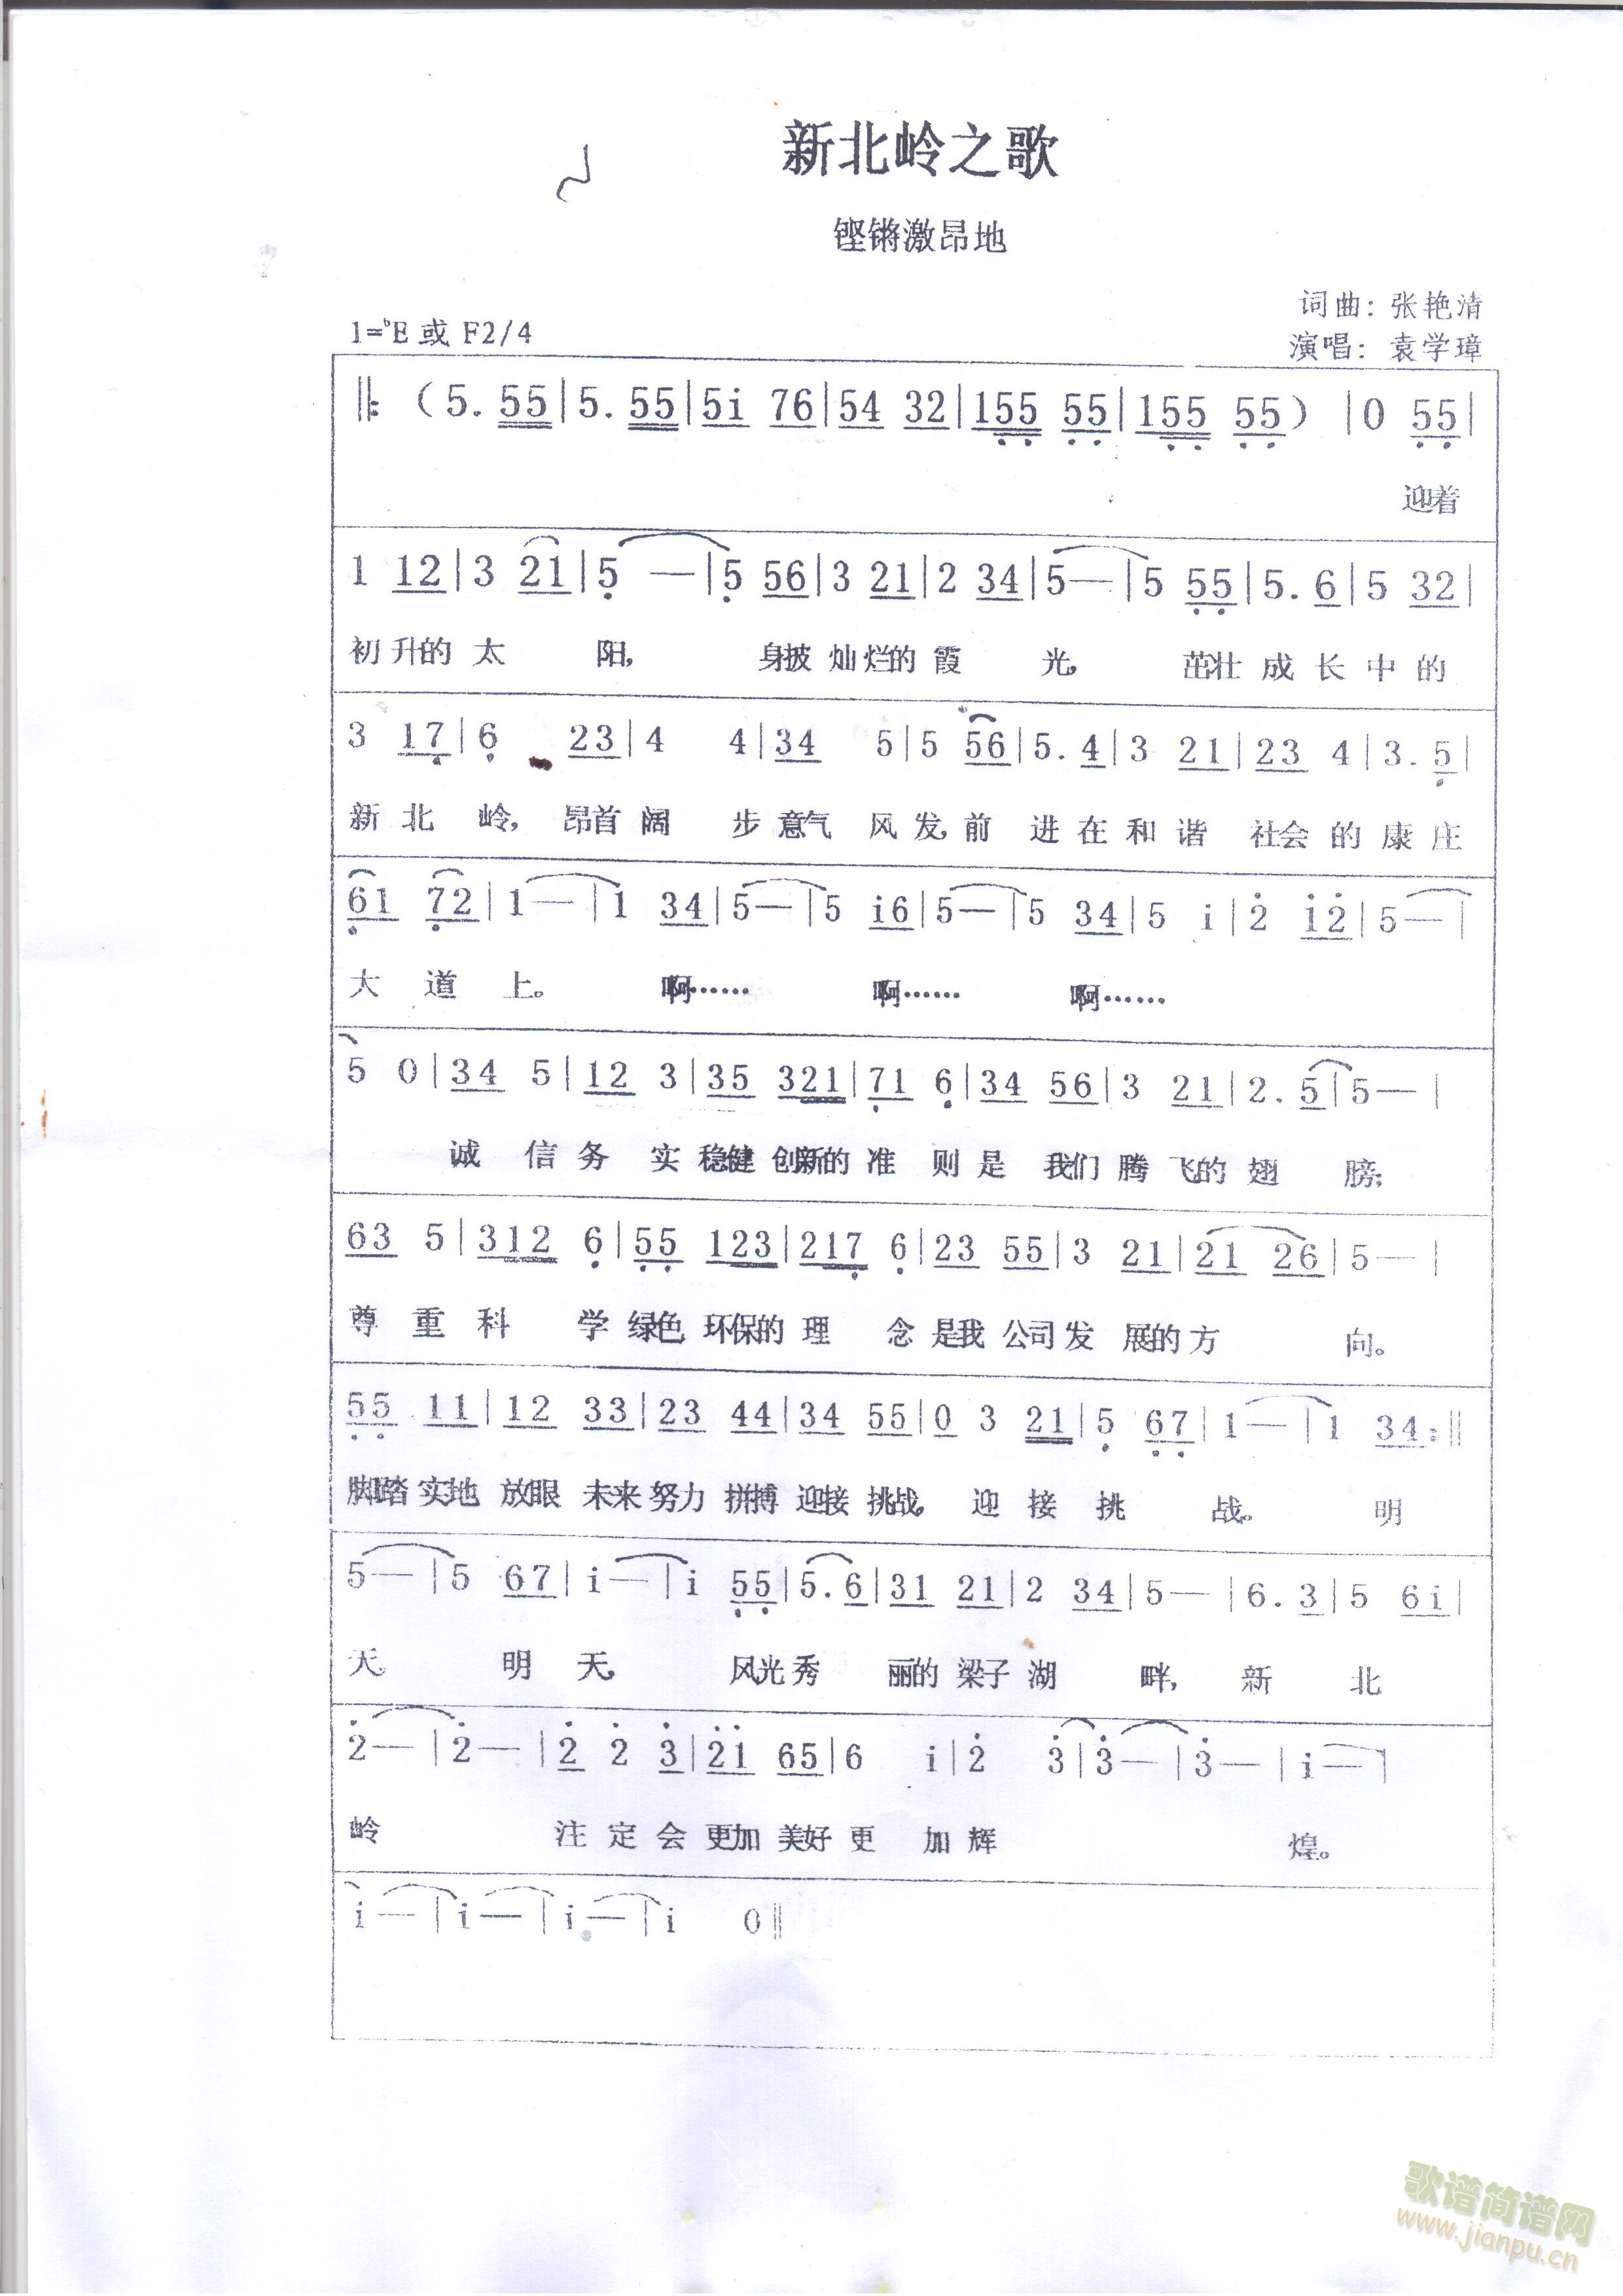 新北岭之歌
铿锵激昂地
词曲：张艳清
1=ᵇE 或 F2/4
演唱：袁学璋
‖: （5. 55|5. 55|5i 76|54 32|155 55|155 55） |0 55|
迎着
1 12|3 21|5 —|5 56|3 21|2 34|5—|5 55|5. 6|5 32|
初升的太 阳， 身披灿烂的霞 光， 茁壮成长中的
3 17|6 23|4 4|34 5|5 56|5. 4|3 21|23 4|3. 5|
新北 岭，昂首阔 步意气 风发，前 进在和谐 社会的康庄
61 72|1—|1 34|5—|5 i6|5—|5 34|5 i|2̇ i2̇|5—|
大 道 上。 啊…… 啊…… 啊……
5 0|34 5|12 3|35 321|71 6|34 56|3 21|2. 5|5—|
诚 信务 实稳健创新的准 则是 我们腾飞的翅 膀；
63 5|312 6|55 123|217 6|23 55|3 21|21 26|5—|
尊重科 学绿色环保的理 念是我公司发展的方 向。
55 11|12 33|23 44|34 55|0 3 21|5 67|1—|1 34:‖
脚踏实地放眼未来努力拼搏迎接挑战，迎接挑 战。 明
5—|5 67|i—|i 55|5. 6|31 21|2 34|5—|6. 3|5 6i|
天， 明天， 风光秀 丽的梁子湖 畔， 新 北
2̇—|2̇—|2̇ 2̇ 3̇|2̇i 65|6 i|2̇ 3̇|3̇—|3̇—|i—|
岭 注定会更加美好更 加辉 煌。
i—|i—|i—|i 0‖
歌谱简谱网
www.jianpu.cn